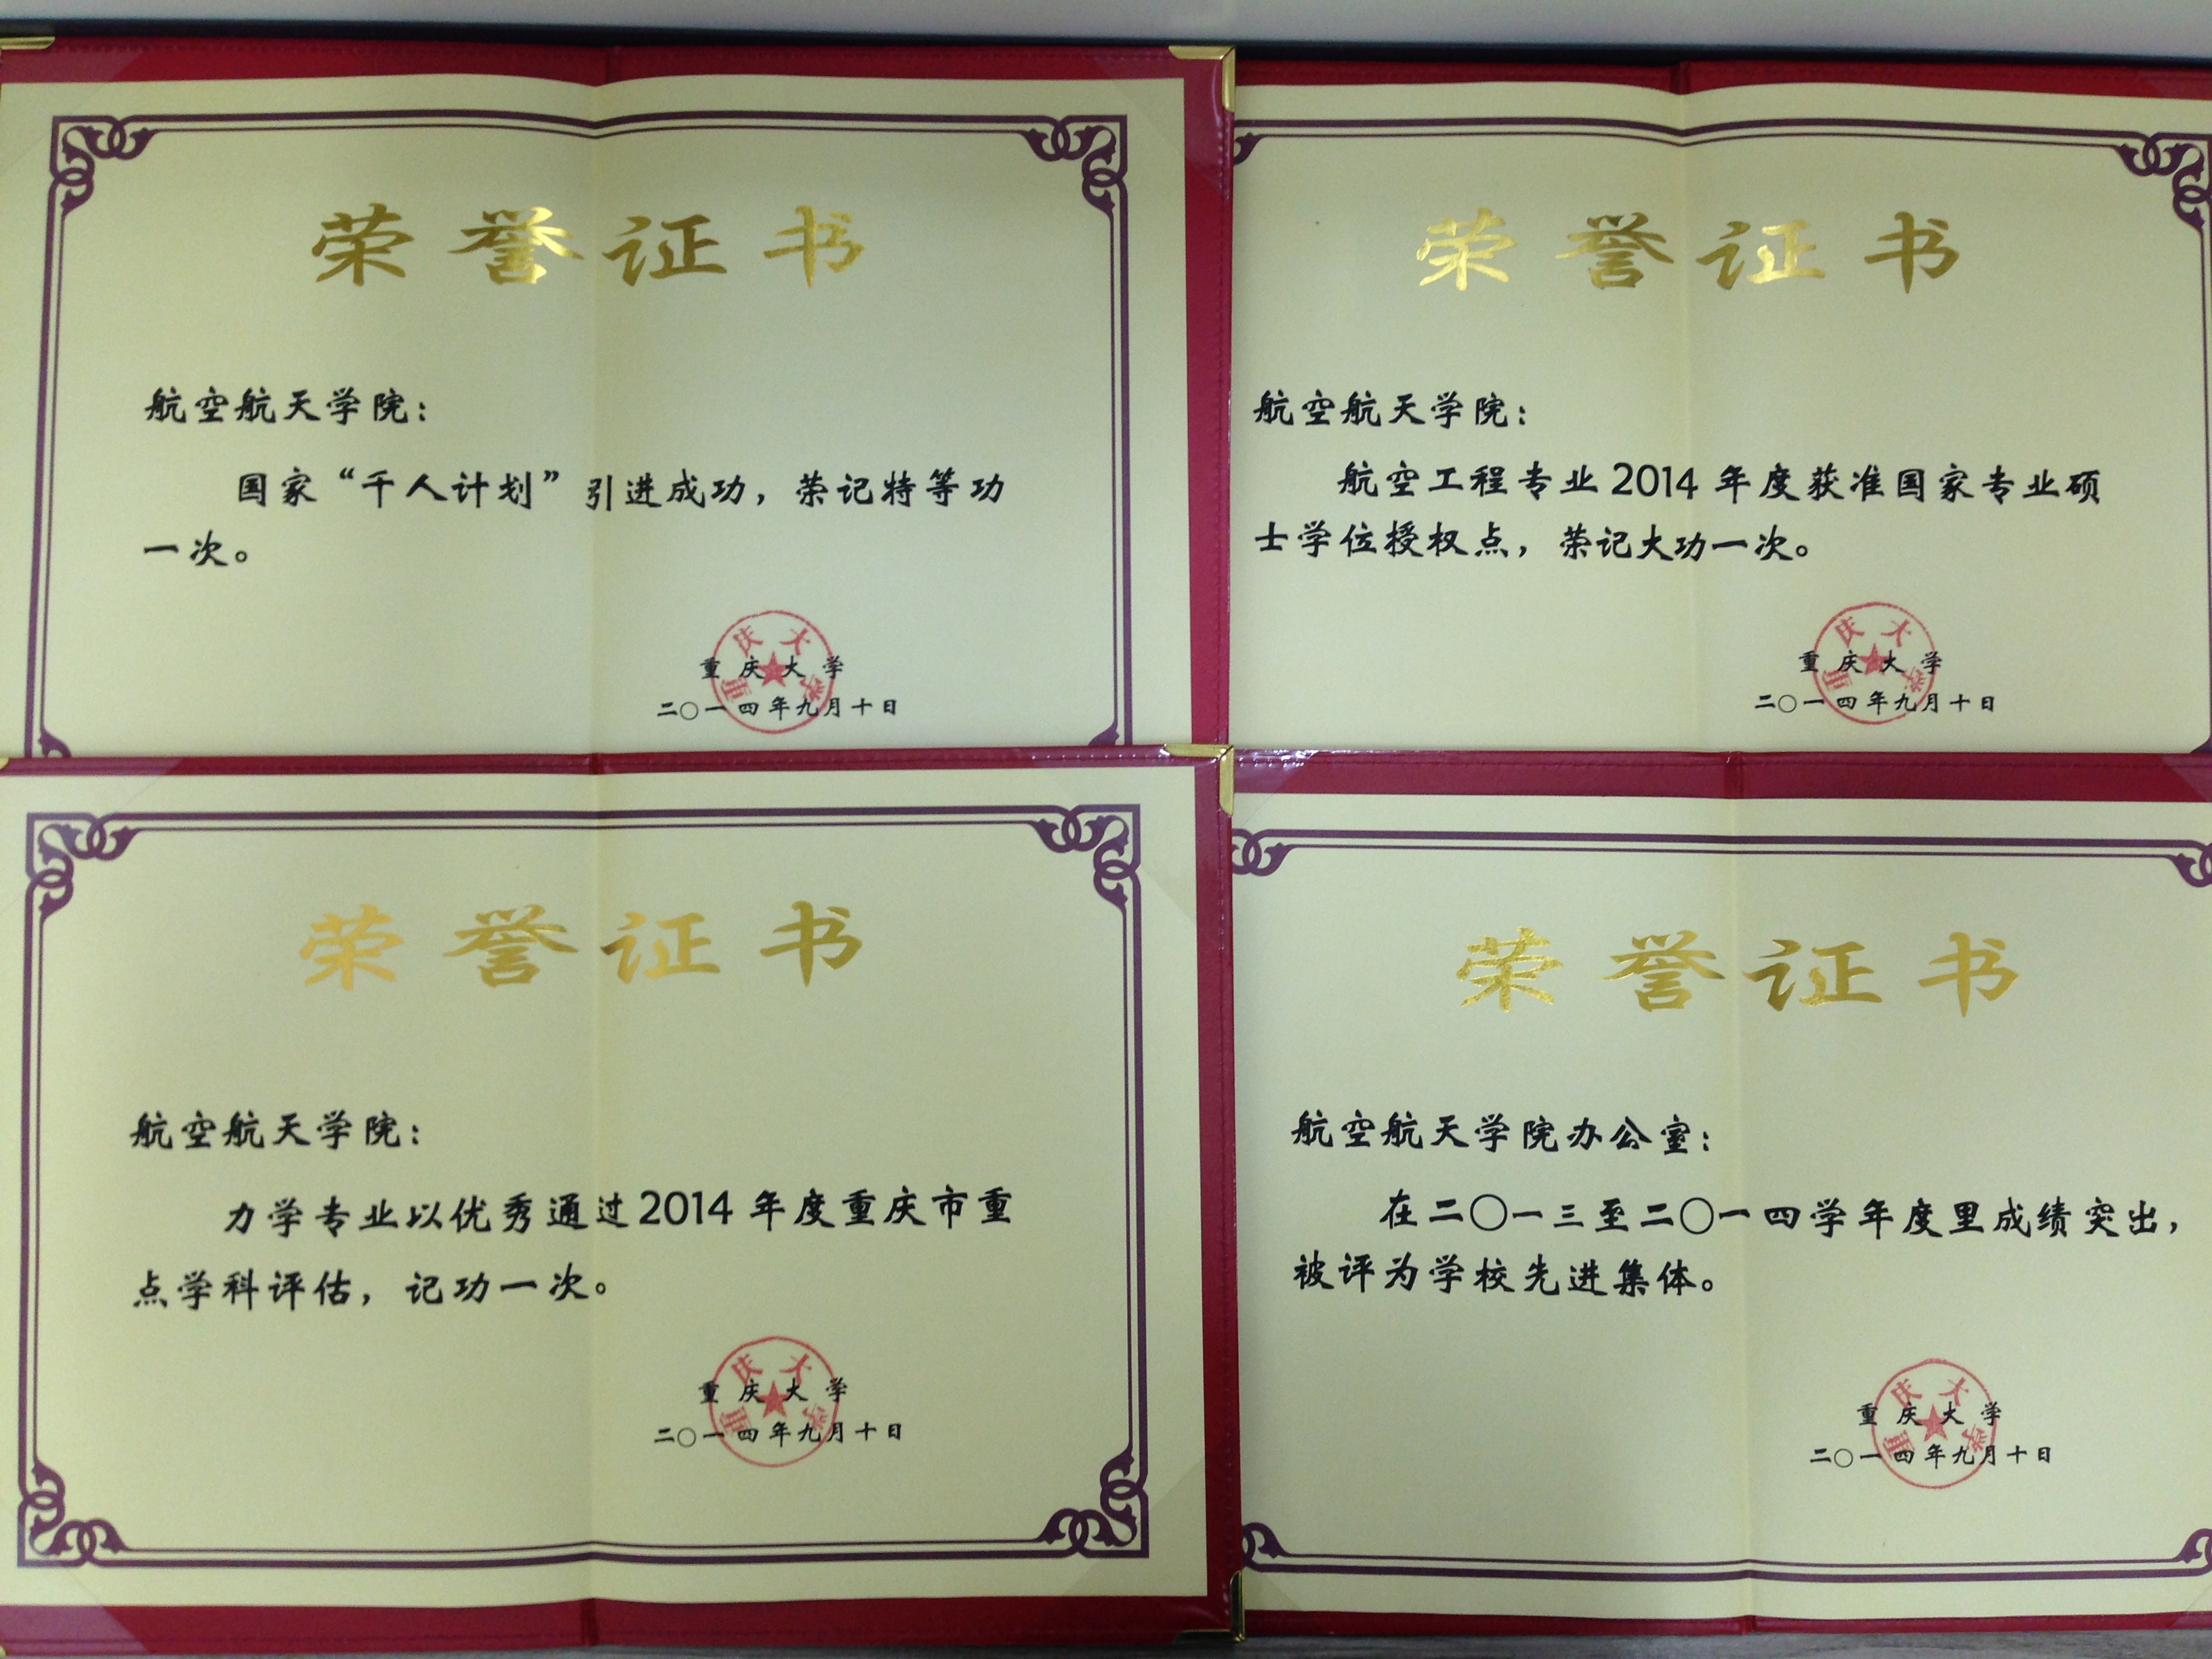 荣誉证书
航空航天学院：
国家“千人计划”引进成功，荣记特等功
一次。
重庆大学
重庆大学
二〇一四年九月十日
荣誉证书
航空航天学院：
航空工程专业2014年度获准国家专业硕
士学位授权点，荣记大功一次。
重庆大学
重庆大学
二〇一四年九月十日
荣誉证书
航空航天学院：
力学专业以优秀通过2014年度重庆市重
点学科评估，记功一次。
重庆大学
重庆大学
二〇一四年九月十日
荣誉证书
航空航天学院办公室：
在二〇一三至二〇一四学年度里成绩突出，
被评为学校先进集体。
重庆大学
重庆大学
二〇一四年九月十日